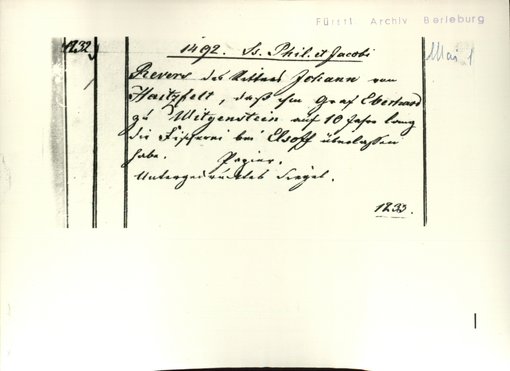 Fürstl Archiv Berleburg
1232
1492. Ss. Phil. et Jacobi
Mai 1
Revers des Ritters Johann von
Haitzfelt, daß ihm Graf Eberhard
zu Witgenstein auf 10 Jahre lang
die Fischerei bei Elsoff überlassen
habe. Papier.
Untergedrucktes Siegel.
1233.